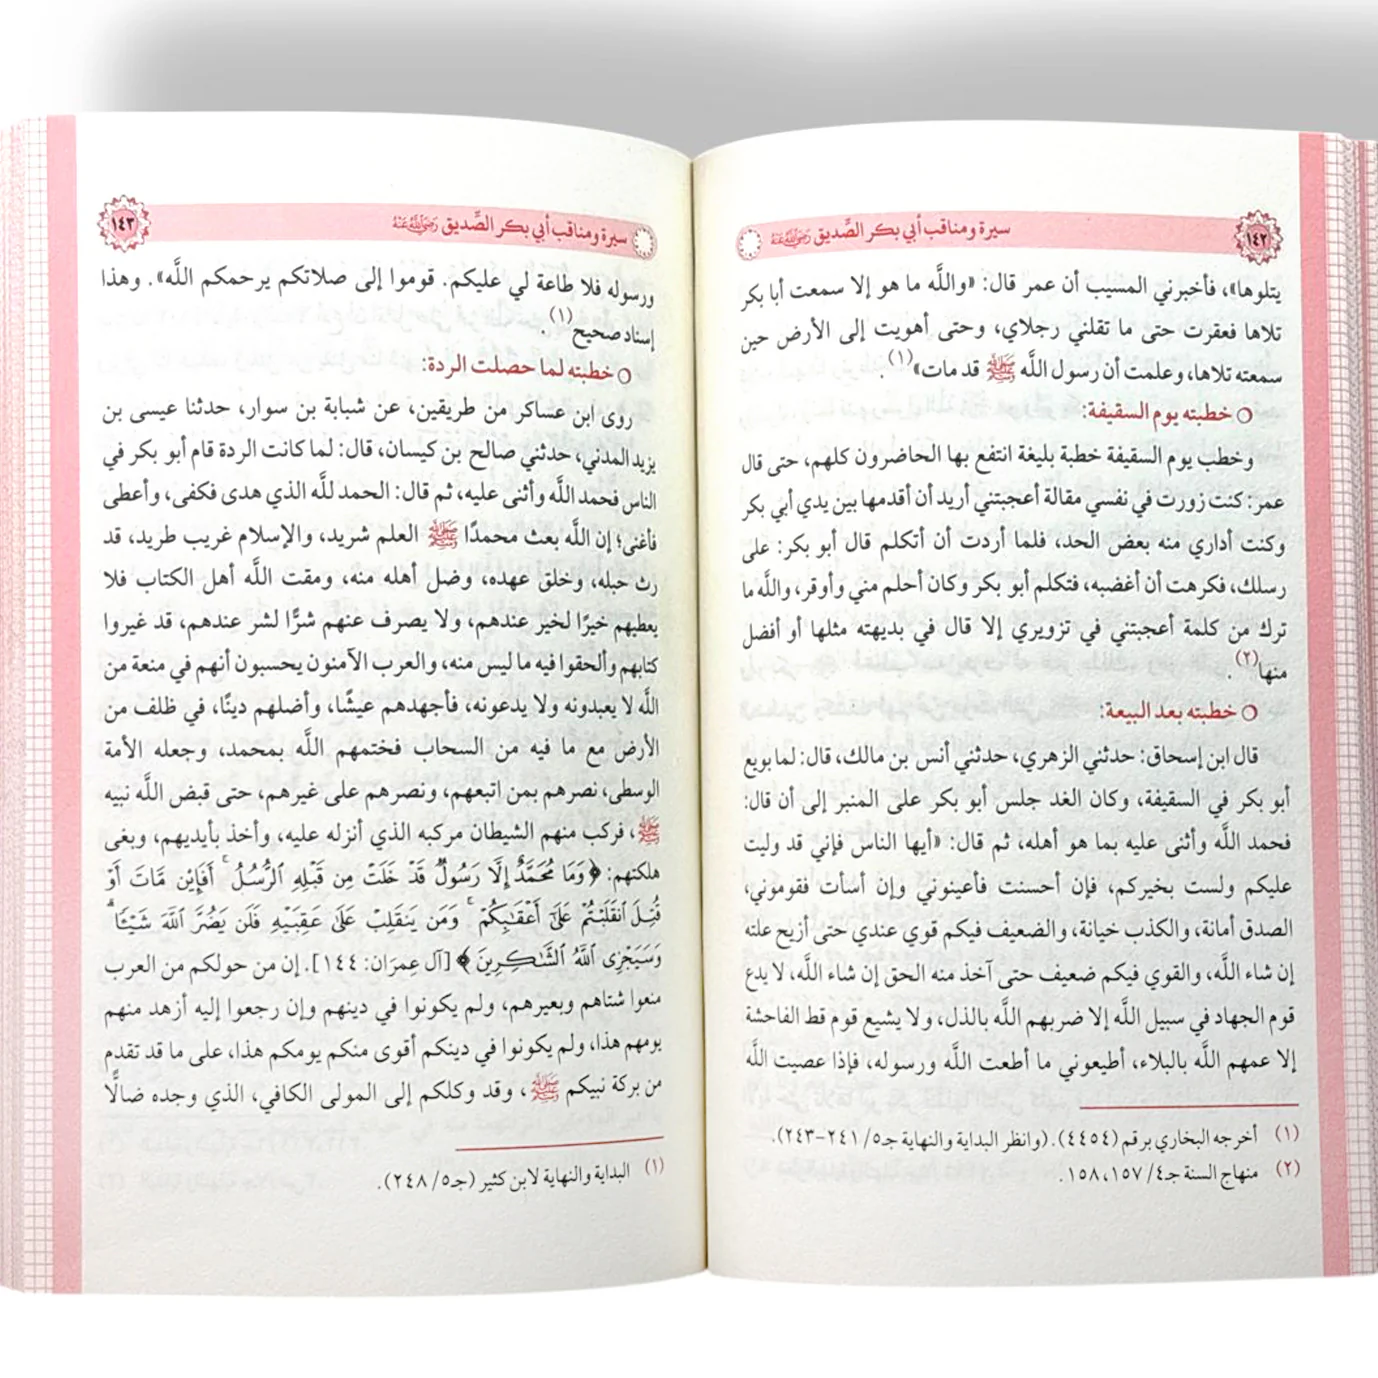 سيرة ومناقب أبي بكر الصِّديق رضي الله عنه
١٤٢
يتلوها»، فأخبرني المسيب أن عمر قال: «واللَّه ما هو إلا سمعت أبا بكر
تلاها فعقرت حتى ما تقلني رجلاي، وحتى أهويت إلى الأرض حين
سمعته تلاها، وعلمت أن رسول اللَّه ﷺ قد مات»(١).
○ خطبته يوم السقيفة:
وخطب يوم السقيفة خطبة بليغة انتفع بها الحاضرون كلهم، حتى قال
عمر: كنت زورت في نفسي مقالة أعجبتني أريد أن أقدمها بين يدي أبي بكر
وكنت أداري منه بعض الحد، فلما أردت أن أتكلم قال أبو بكر: على
رسلك، فكرهت أن أغضبه، فتكلم أبو بكر وكان أحلم مني وأوقر، واللَّه ما
ترك من كلمة أعجبتني في تزويري إلا قال في بديهته مثلها أو أفضل
منها(٢).
○ خطبته بعد البيعة:
قال ابن إسحاق: حدثني الزهري، حدثني أنس بن مالك، قال: لما بويع
أبو بكر في السقيفة، وكان الغد جلس أبو بكر على المنبر إلى أن قال:
فحمد اللَّه وأثنى عليه بما هو أهله، ثم قال: «أيها الناس فإني قد وليت
عليكم ولست بخيركم، فإن أحسنت فأعينوني وإن أسأت فقوموني،
الصدق أمانة، والكذب خيانة، والضعيف فيكم قوي عندي حتى أزيح علته
إن شاء اللَّه، والقوي فيكم ضعيف حتى آخذ منه الحق إن شاء اللَّه، لا يدع
قوم الجهاد في سبيل اللَّه إلا ضربهم اللَّه بالذل، ولا يشيع قوم قط الفاحشة
إلا عمهم اللَّه بالبلاء، أطيعوني ما أطعت اللَّه ورسوله، فإذا عصيت اللَّه
(١) أخرجه البخاري برقم (٤٤٥٤). (وانظر البداية والنهاية جـ٥/ ٢٤١-٢٤٣).
(٢) منهاج السنة جـ٤/ ١٥٧، ١٥٨.
سيرة ومناقب أبي بكر الصِّديق رضي الله عنه
١٤٣
ورسوله فلا طاعة لي عليكم. قوموا إلى صلاتكم يرحمكم اللَّه». وهذا
إسناد صحيح(١).
○ خطبته لما حصلت الردة:
روى ابن عساكر من طريقين، عن شبابة بن سوار، حدثنا عيسى بن
يزيد المدني، حدثني صالح بن كيسان، قال: لما كانت الردة قام أبو بكر في
الناس فحمد اللَّه وأثنى عليه، ثم قال: الحمد للَّه الذي هدى فكفى، وأعطى
فأغنى؛ إن اللَّه بعث محمدًا ﷺ العلم شريد، والإسلام غريب طريد، قد
رث حبله، وخلق عهده، وضل أهله منه، ومقت اللَّه أهل الكتاب فلا
يعطيهم خيرًا لخير عندهم، ولا يصرف عنهم شرًّا لشر عندهم، قد غيروا
كتابهم وألحقوا فيه ما ليس منه، والعرب الآمنون يحسبون أنهم في منعة من
اللَّه لا يعبدونه ولا يدعونه، فأجهدهم عيشًا، وأضلهم دينًا، في ظلف من
الأرض مع ما فيه من السحاب فختمهم اللَّه بمحمد، وجعله الأمة
الوسطى، نصرهم بمن اتبعهم، ونصرهم على غيرهم، حتى قبض اللَّه نبيه
ﷺ، فركب منهم الشيطان مركبه الذي أنزله عليه، وأخذ بأيديهم، وبغى
هلكتهم: ﴿وَمَا مُحَمَّدٌ إِلَّا رَسُولٌ قَدْ خَلَتْ مِن قَبْلِهِ ٱلرُّسُلُ ۚ أَفَإِيْن مَّاتَ أَوْ
قُتِلَ ٱنقَلَبْتُمْ عَلَىٰٓ أَعْقَـٰبِكُمْ ۚ وَمَن يَنقَلِبْ عَلَىٰ عَقِبَيْهِ فَلَن يَضُرَّ ٱللَّهَ شَيْـًٔا ۗ
وَسَيَجْزِى ٱللَّهُ ٱلشَّـٰكِرِينَ﴾ [آل عِمرَان: ١٤٤]. إن من حولكم من العرب
منعوا شتاهم وبعيرهم، ولم يكونوا في دينهم وإن رجعوا إليه أزهد منهم
يومهم هذا، ولم يكونوا في دينكم أقوى منكم يومكم هذا، على ما قد تقدم
من بركة نبيكم ﷺ، وقد وكلكم إلى المولى الكافي، الذي وجده ضالًّا
(١) البداية والنهاية لابن كثير (جـ٥/ ٢٤٨).